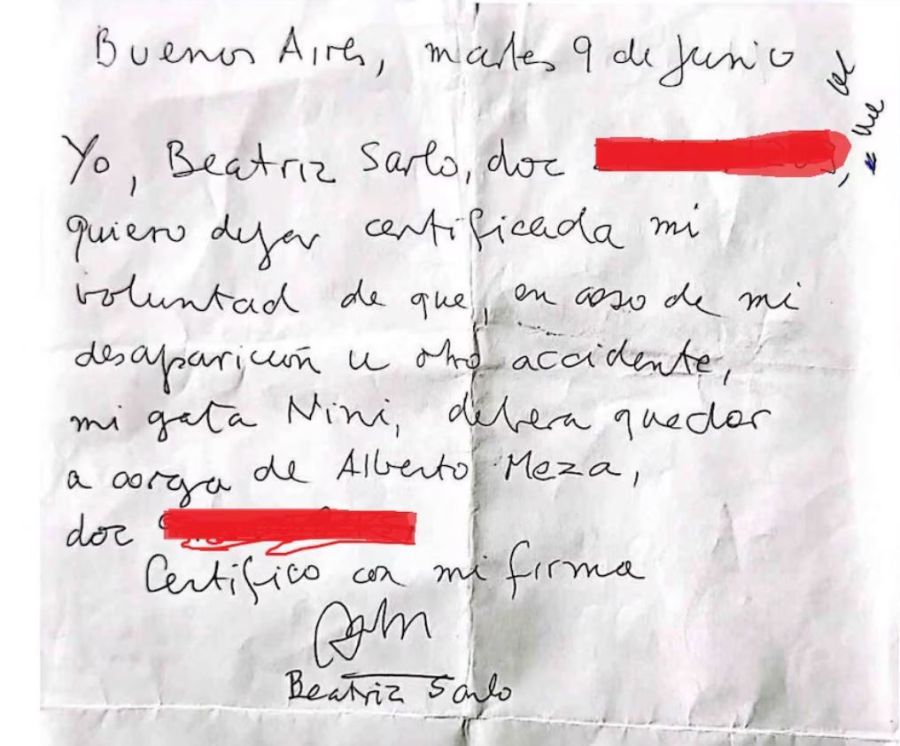 Buenos Aires, martes 9 de junio
Yo, Beatriz Sarlo, doc
quiero dejar certificada mi
voluntad de que, en caso de mi
desaparición u otro accidente,
mi gata Nini, debera quedar
a carga de Alberto Meza,
doc
Certifico con mi firma
Beatriz Sarlo